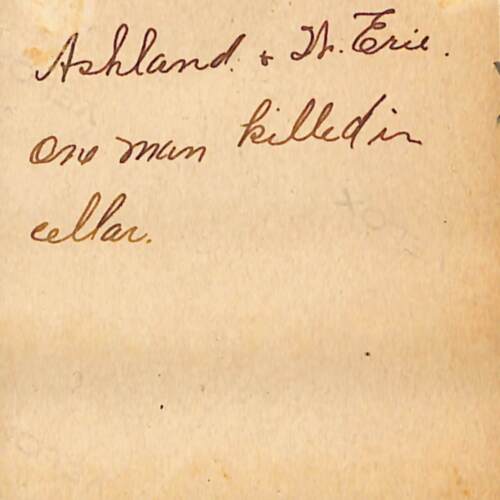 Ashland. + W. Erie.
one man killed in
cellar.